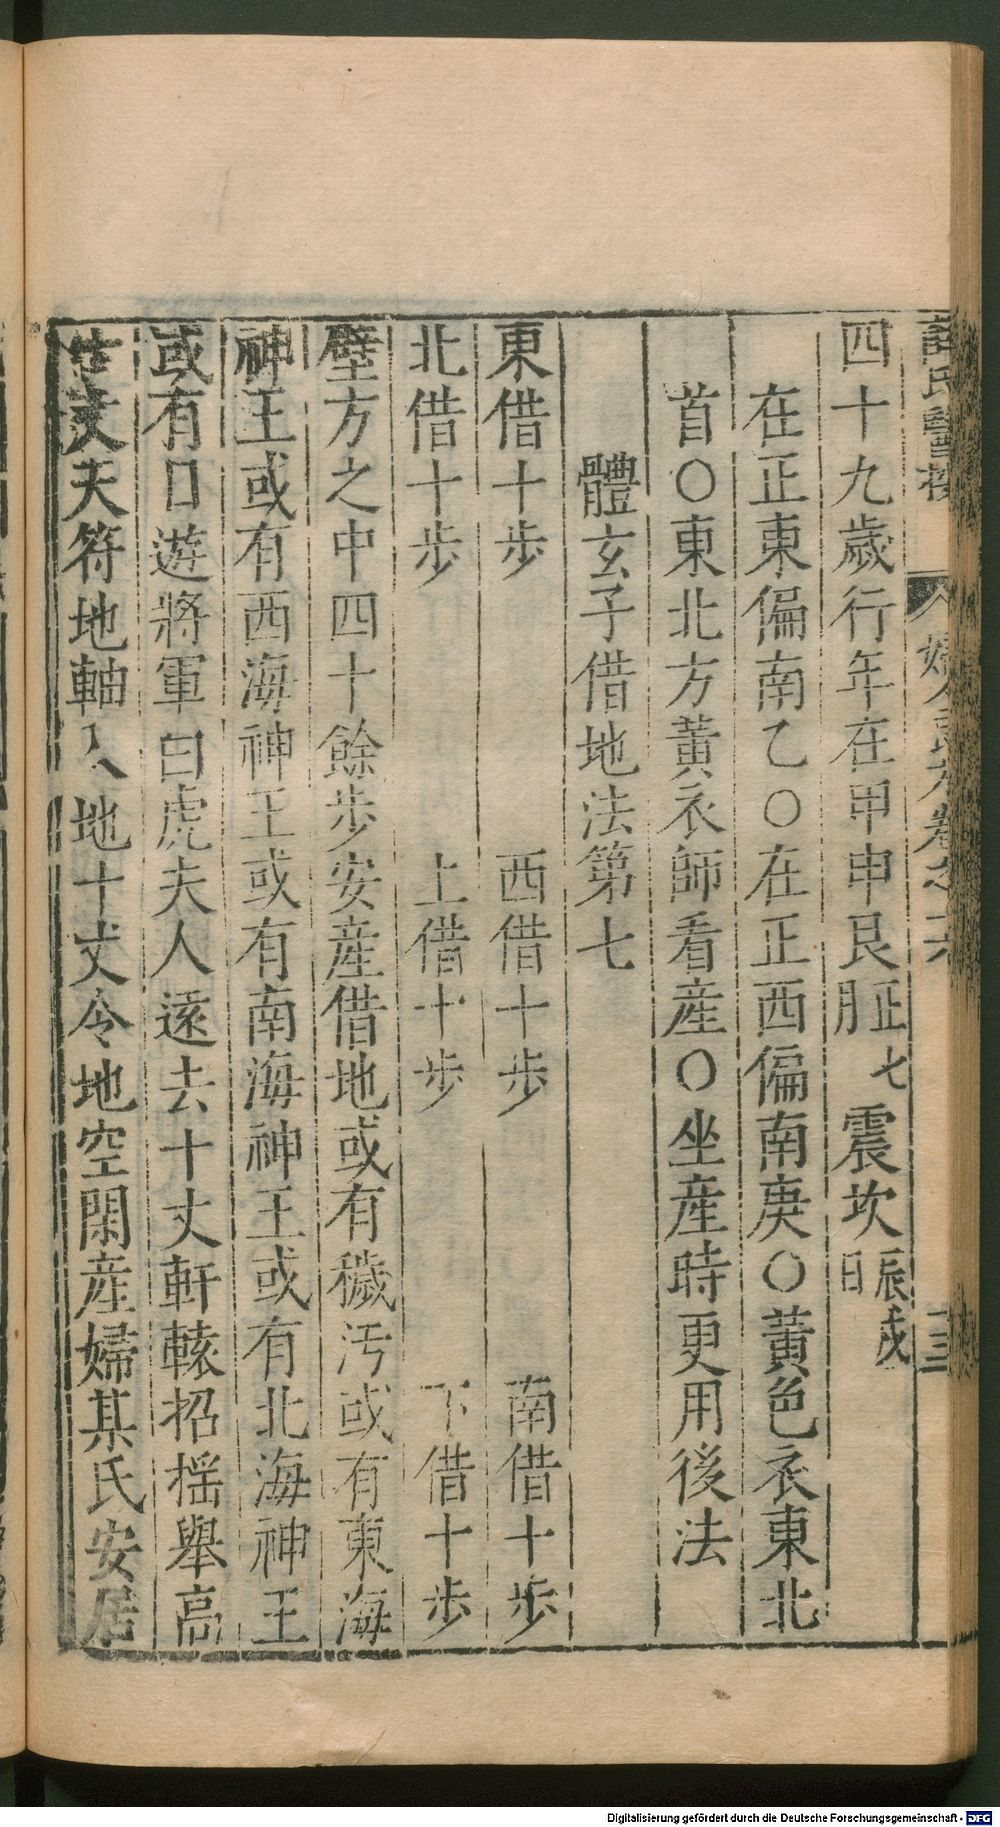 四十九歲行年在甲申艮正七月震坎辰戌日
在正東偏南乙〇在正西偏南庚〇黃色衣東北
首〇東北方黃衣師看産〇坐産時更用後法
體玄子借地法第七
東借十步 西借十步 南借十步
北借十步 上借十步 下借十步
壁方之中四十餘步安産借地或有穢汚或有東海
神王或有西海神王或有南海神王或有北海神王
或有日遊將軍白虎夫人遠去十丈軒轅招搖舉高
丈天符地軸入地十丈令地空閑産婦某氏安居
婦人良方卷之六
十三
Digitalisierung gefördert durch die Deutsche Forschungsgemeinschaft - DFG